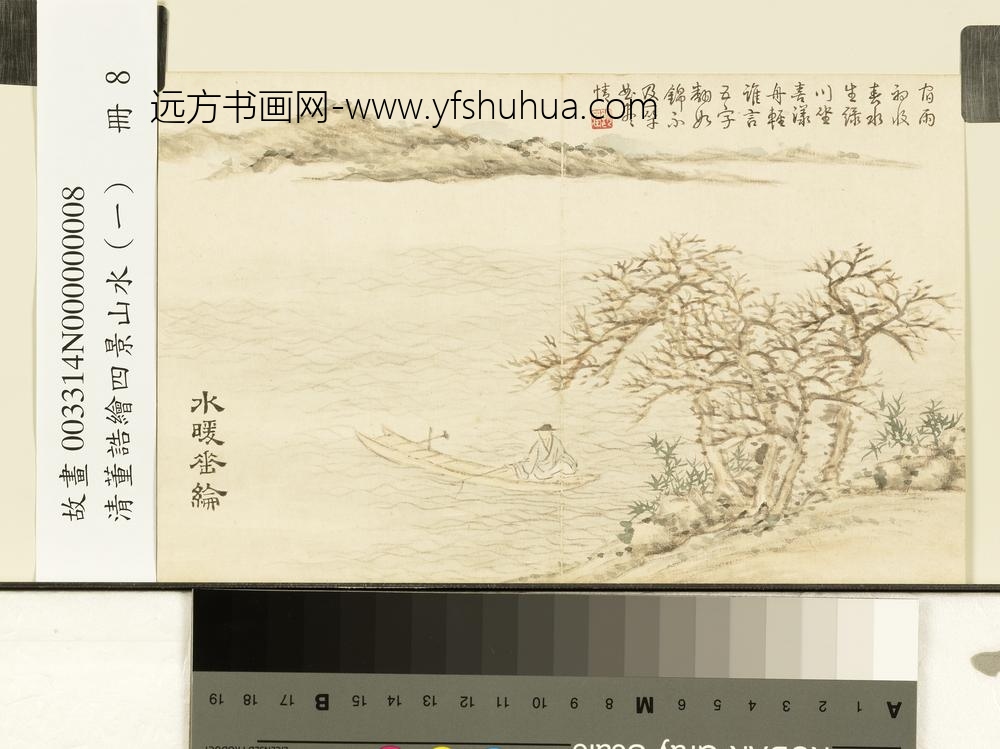 远方书画网-www.yfshuhua.com
故畫 003314N000000008
清董誥繪四景山水(一) 冊 8
宿雨
初收
春水
生緑
川坐
喜漾
舟輕
誰言
五字
翻如
錦不
及
情
水暖垂綸
A 1 2 3 4 5 6 M 8 9 10 11 12 13 14 15 B 17 18 19
KODAK Gray Scale